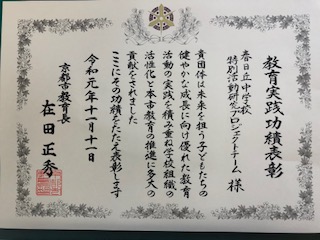 教育実践功績表彰
春日丘中学校
特別活動研究プロジェクトチーム 様
貴団体は未来を担う子どもたちの
健やかな成長に向け優れた教育
活動の実践を積み重ね学校組織の
活性化と本市教育の推進に多大の
貢献をされました
ここにその功績をたたえ表彰します
令和元年十一月十一日
京都市教育長
在田正秀